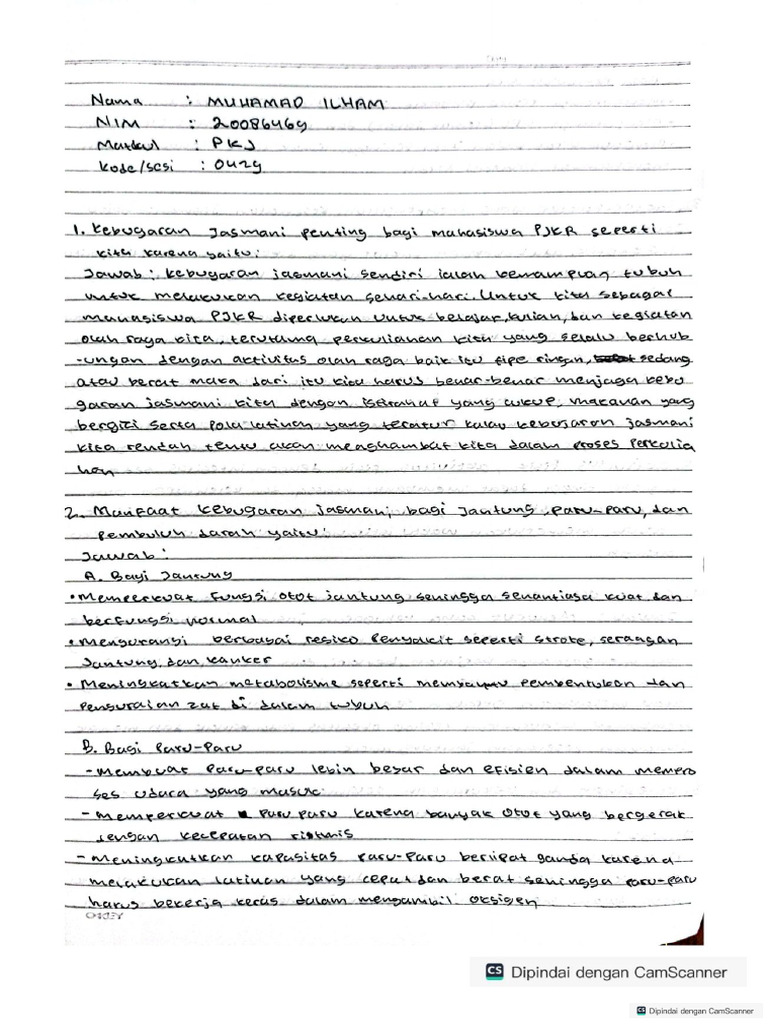 Nama : MUHAMAD ILHAM
NIM : 20086469
Matkul : PKJ
Kode/sesi : 0429
1. Kebugaran Jasmani penting bagi mahasiswa PJKR seperti
kita karena yaitu:
Jawab : kebugaran jasmani sendiri ialah kemampuan tubuh
untuk melakukan kegiatan sehari-hari. Untuk kita sebagai
mahasiswa PJKR diperlukan untuk belajar, kuliah, dan kegiatan
olah raga kita, terutama perkuliahan kita yang selalu berhub
-ungan dengan aktivitas olah raga baik itu tipe ringan, sedang
atau berat maka dari itu kita harus benar-benar menjaga kebu
garan jasmani kita dengan istirahat yang cukup, makanan yang
bergizi serta pola latihan yang teratur kalau kebugaran jasmani
kita rendah tentu akan menghambat kita dalam proses perkulia
han
2. Manfaat kebugaran jasmani bagi jantung, paru-paru, dan
pembuluh darah yaitu:
Jawab :
A. Bagi Jantung
• Memperkuat fungsi otot jantung sehingga senantiasa kuat dan
berfungsi normal
• Mengurangi berbagai resiko penyakit seperti stroke, serangan
jantung, dan kanker
• Meningkatkan metabolisme seperti membantu pembentukan dan
penguraian zat di dalam tubuh
B. Bagi Paru-Paru
- Membuat paru-paru lebih besar dan efisien dalam mempro
ses udara yang masuk
- Memperkuat paru paru karena banyak otot yang bergerak
dengan kecepatan ritmis
- Meningkatkan kapasitas paru-paru berlipat ganda karena
melakukan latihan yang cepat dan berat sehingga paru-paru
harus bekerja keras dalam mengambil oksigen
CS Dipindai dengan CamScanner
CS Dipindai dengan CamScanner